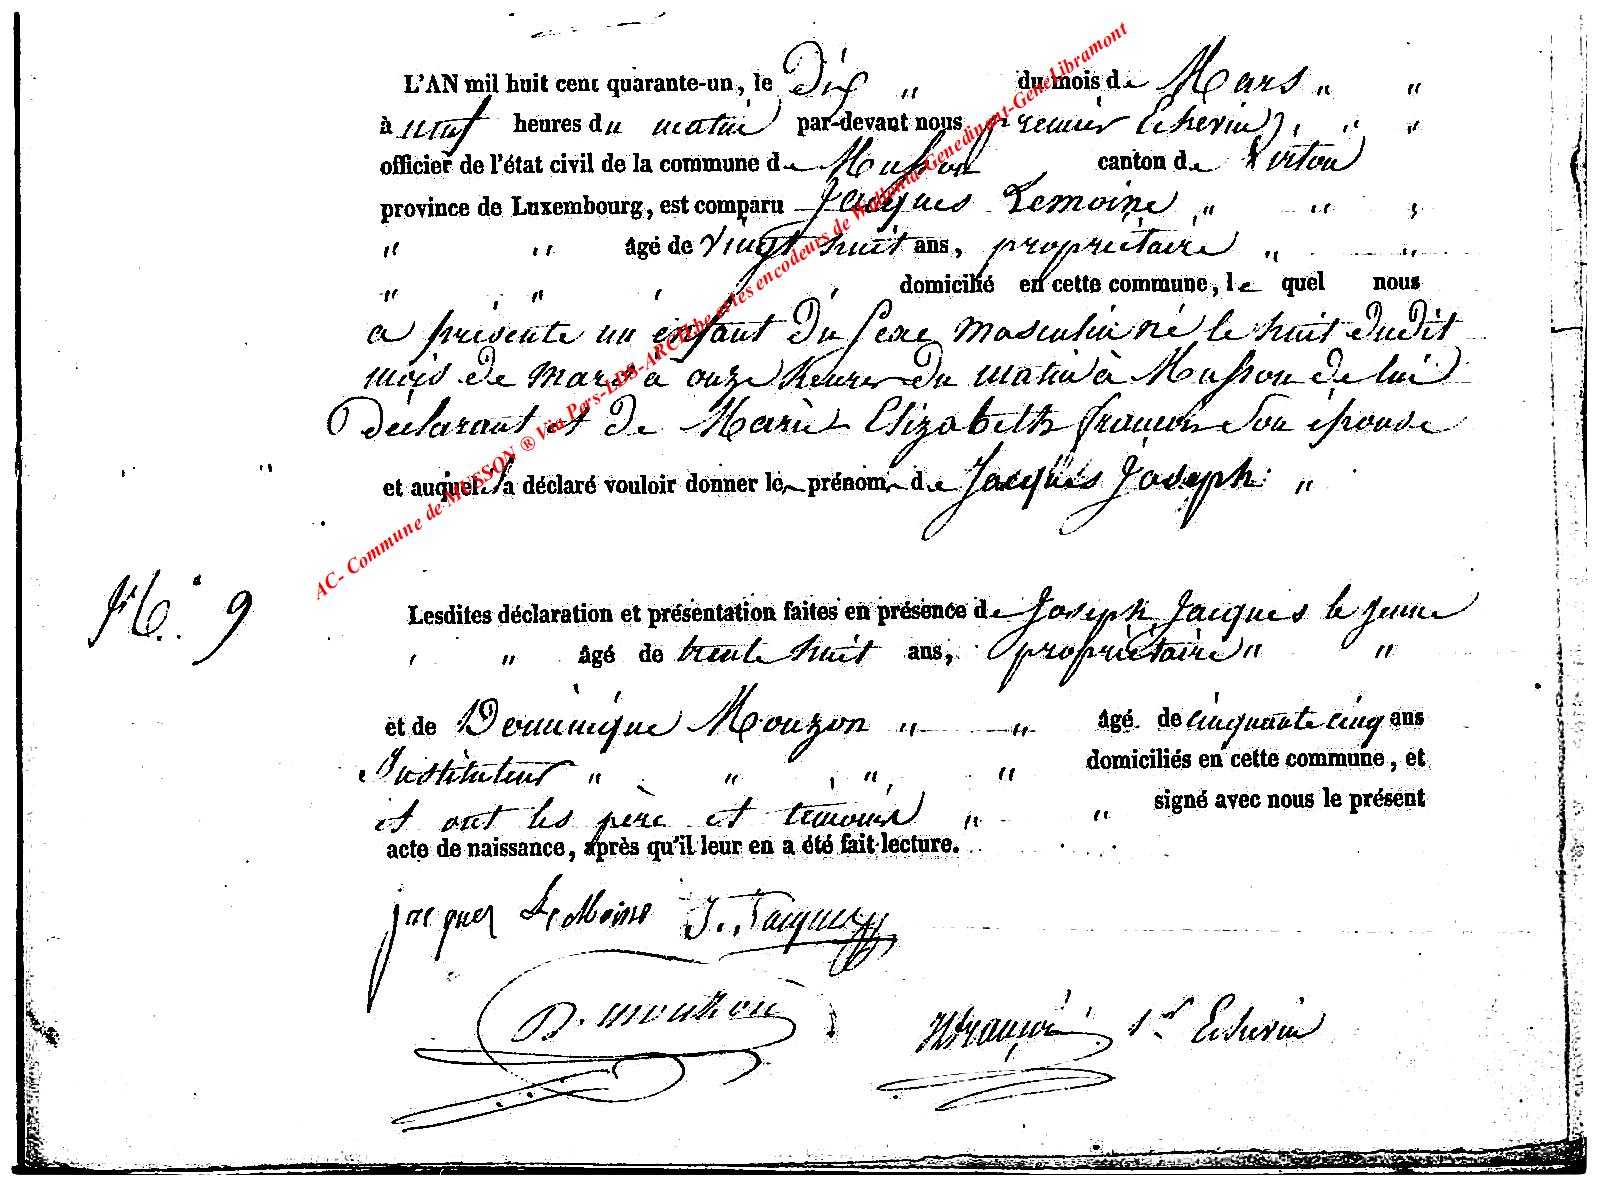 L'AN mil huit cent quarante-un, le Dix " du mois de Mars " "
à neuf heures du matin par-devant nous Premier Echevin, " "
officier de l'état civil de la commune de Musson canton de Virton
province de Luxembourg, est comparu Jacques Lemoine " " "
" " âgé de vingt huit ans, propriétaire " "
" " domicilié en cette commune, le quel nous
a présenté un enfant du sexe masculin né le huit dudit
mois de mars à onze heures du matin à Musson de lui
Déclarant et de Marie Elizabeth françois son épouse
et auquel il a déclaré vouloir donner les prénoms de Jacques Joseph "
N° 9
Lesdites déclaration et présentation faites en présence de Joseph Jacques le jeune
" âgé de trente huit ans, propriétaire " "
et de Dominique Mouzon " " âgé de cinquante cinq ans
Instituteur " " " " domiciliés en cette commune, et
et ont les père et témoins " " signé avec nous le présent
acte de naissance, après qu'il leur en a été fait lecture.
jacques LeMoine J. Jacques
D. mouzon françois 1er Echevin
AC- Commune de MUSSON ® Via Pers-LDS-ARCH.be et les encodeurs de Wallonia-Genedinant-GeneLibramont